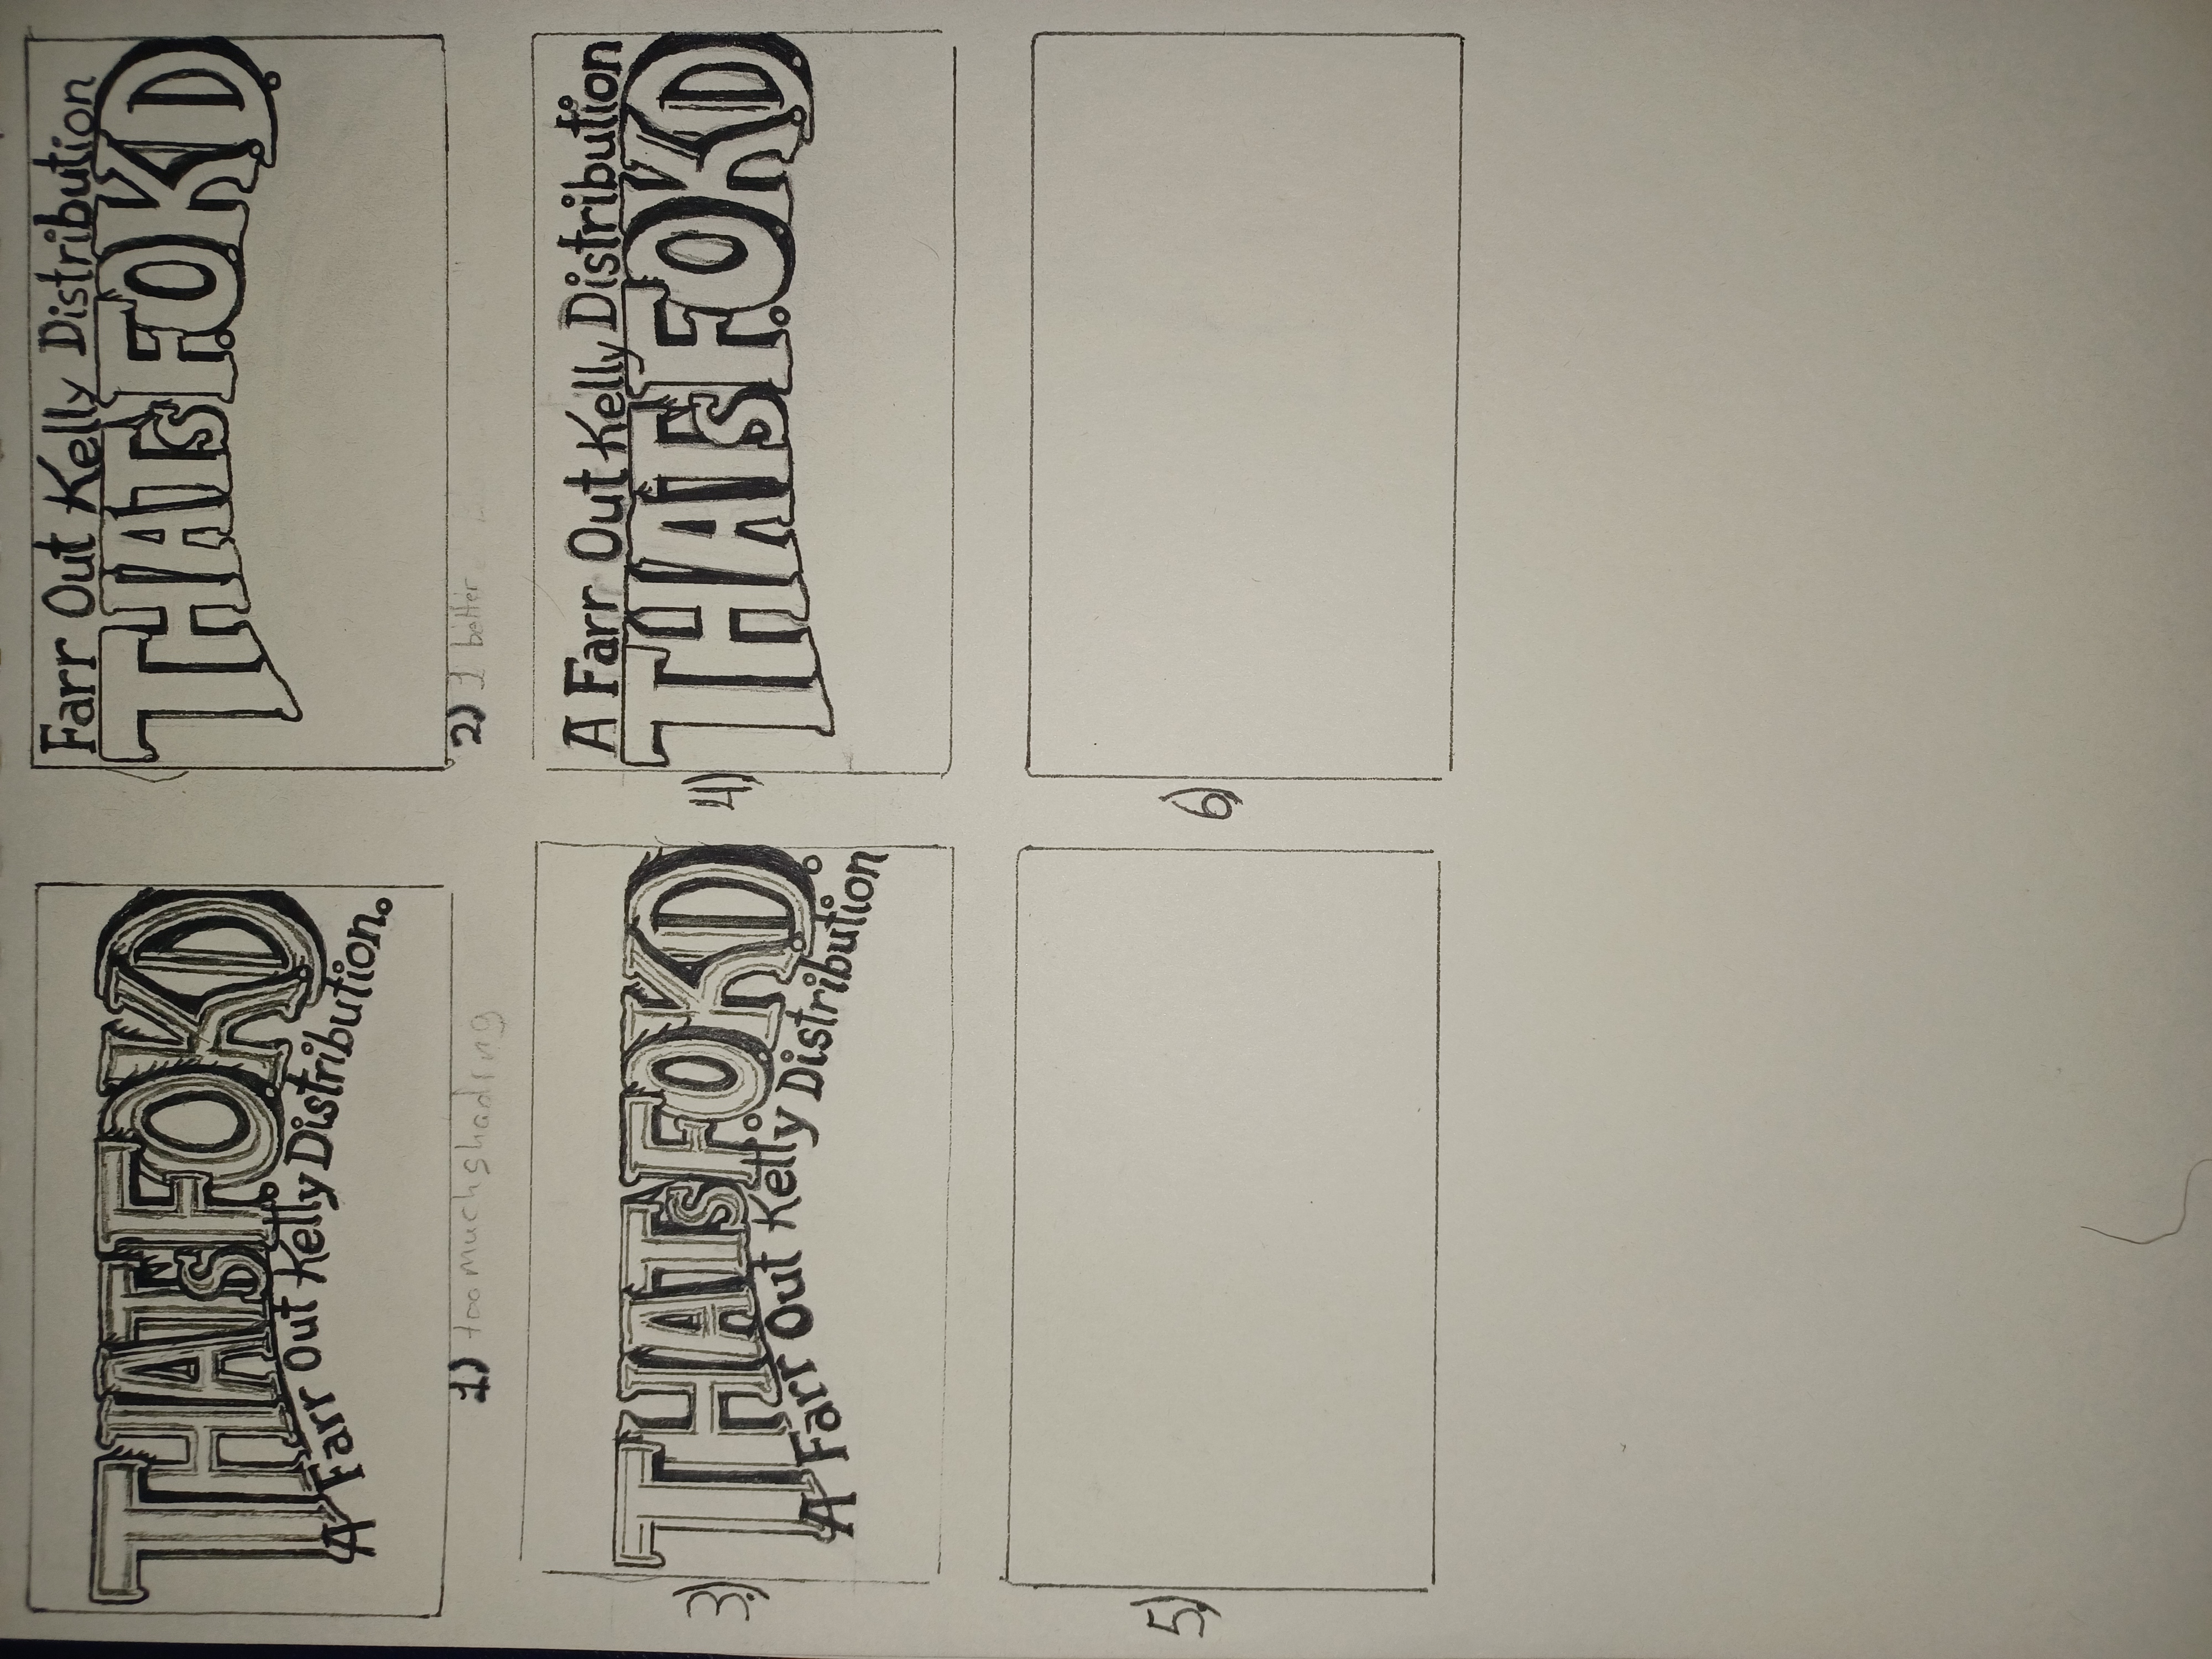 THATS F.O.K.D.
A Farr Out Kelly Distribution.
1) too much shading
Farr Out Kelly Distribution
THATS F.O.K.D.
2) 1 better
3.)
THATS F.O.K.D.
A Farr Out Kelly Distribution
4)
A Farr Out Kelly Distribution
THATS F.O.K.D.
5.)
6)